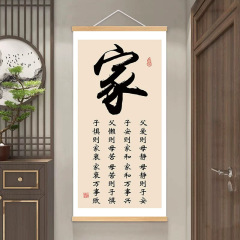 家
父爱则母静母静则子安
子安则家和家和万事兴
父懒则母苦母苦则子惧
子惧则家衰家衰万事败